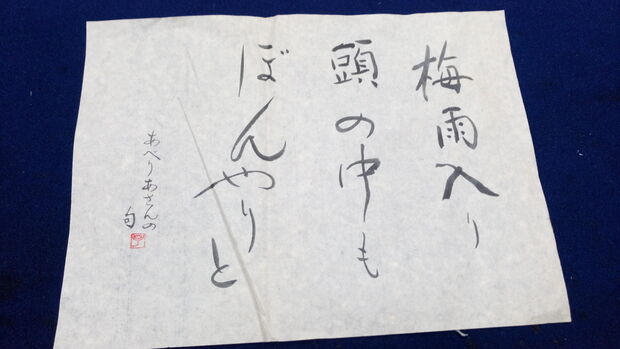 梅雨入り
頭の中も
ぼんやりと
あべりあさんの
句